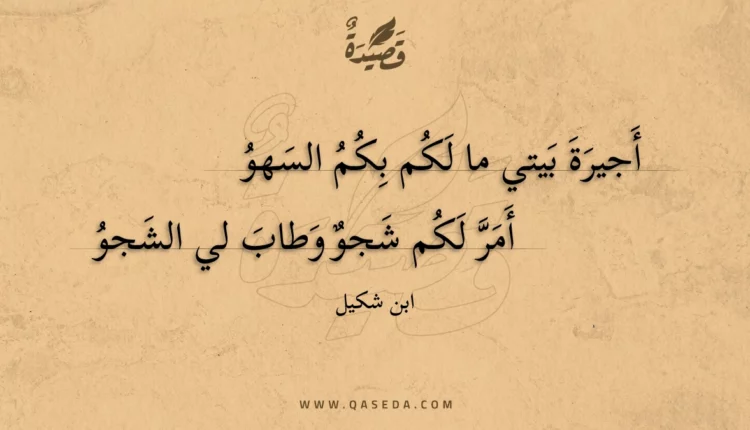 قَصِيدَةٌ
أَجيرَةَ بَيتي ما لَكُم بِكُمُ السَهوُ
أَمَرَّ لَكُم شَجوٌ وَطابَ لي الشَجوُ
ابن شكيل
WWW.QASEDA.COM